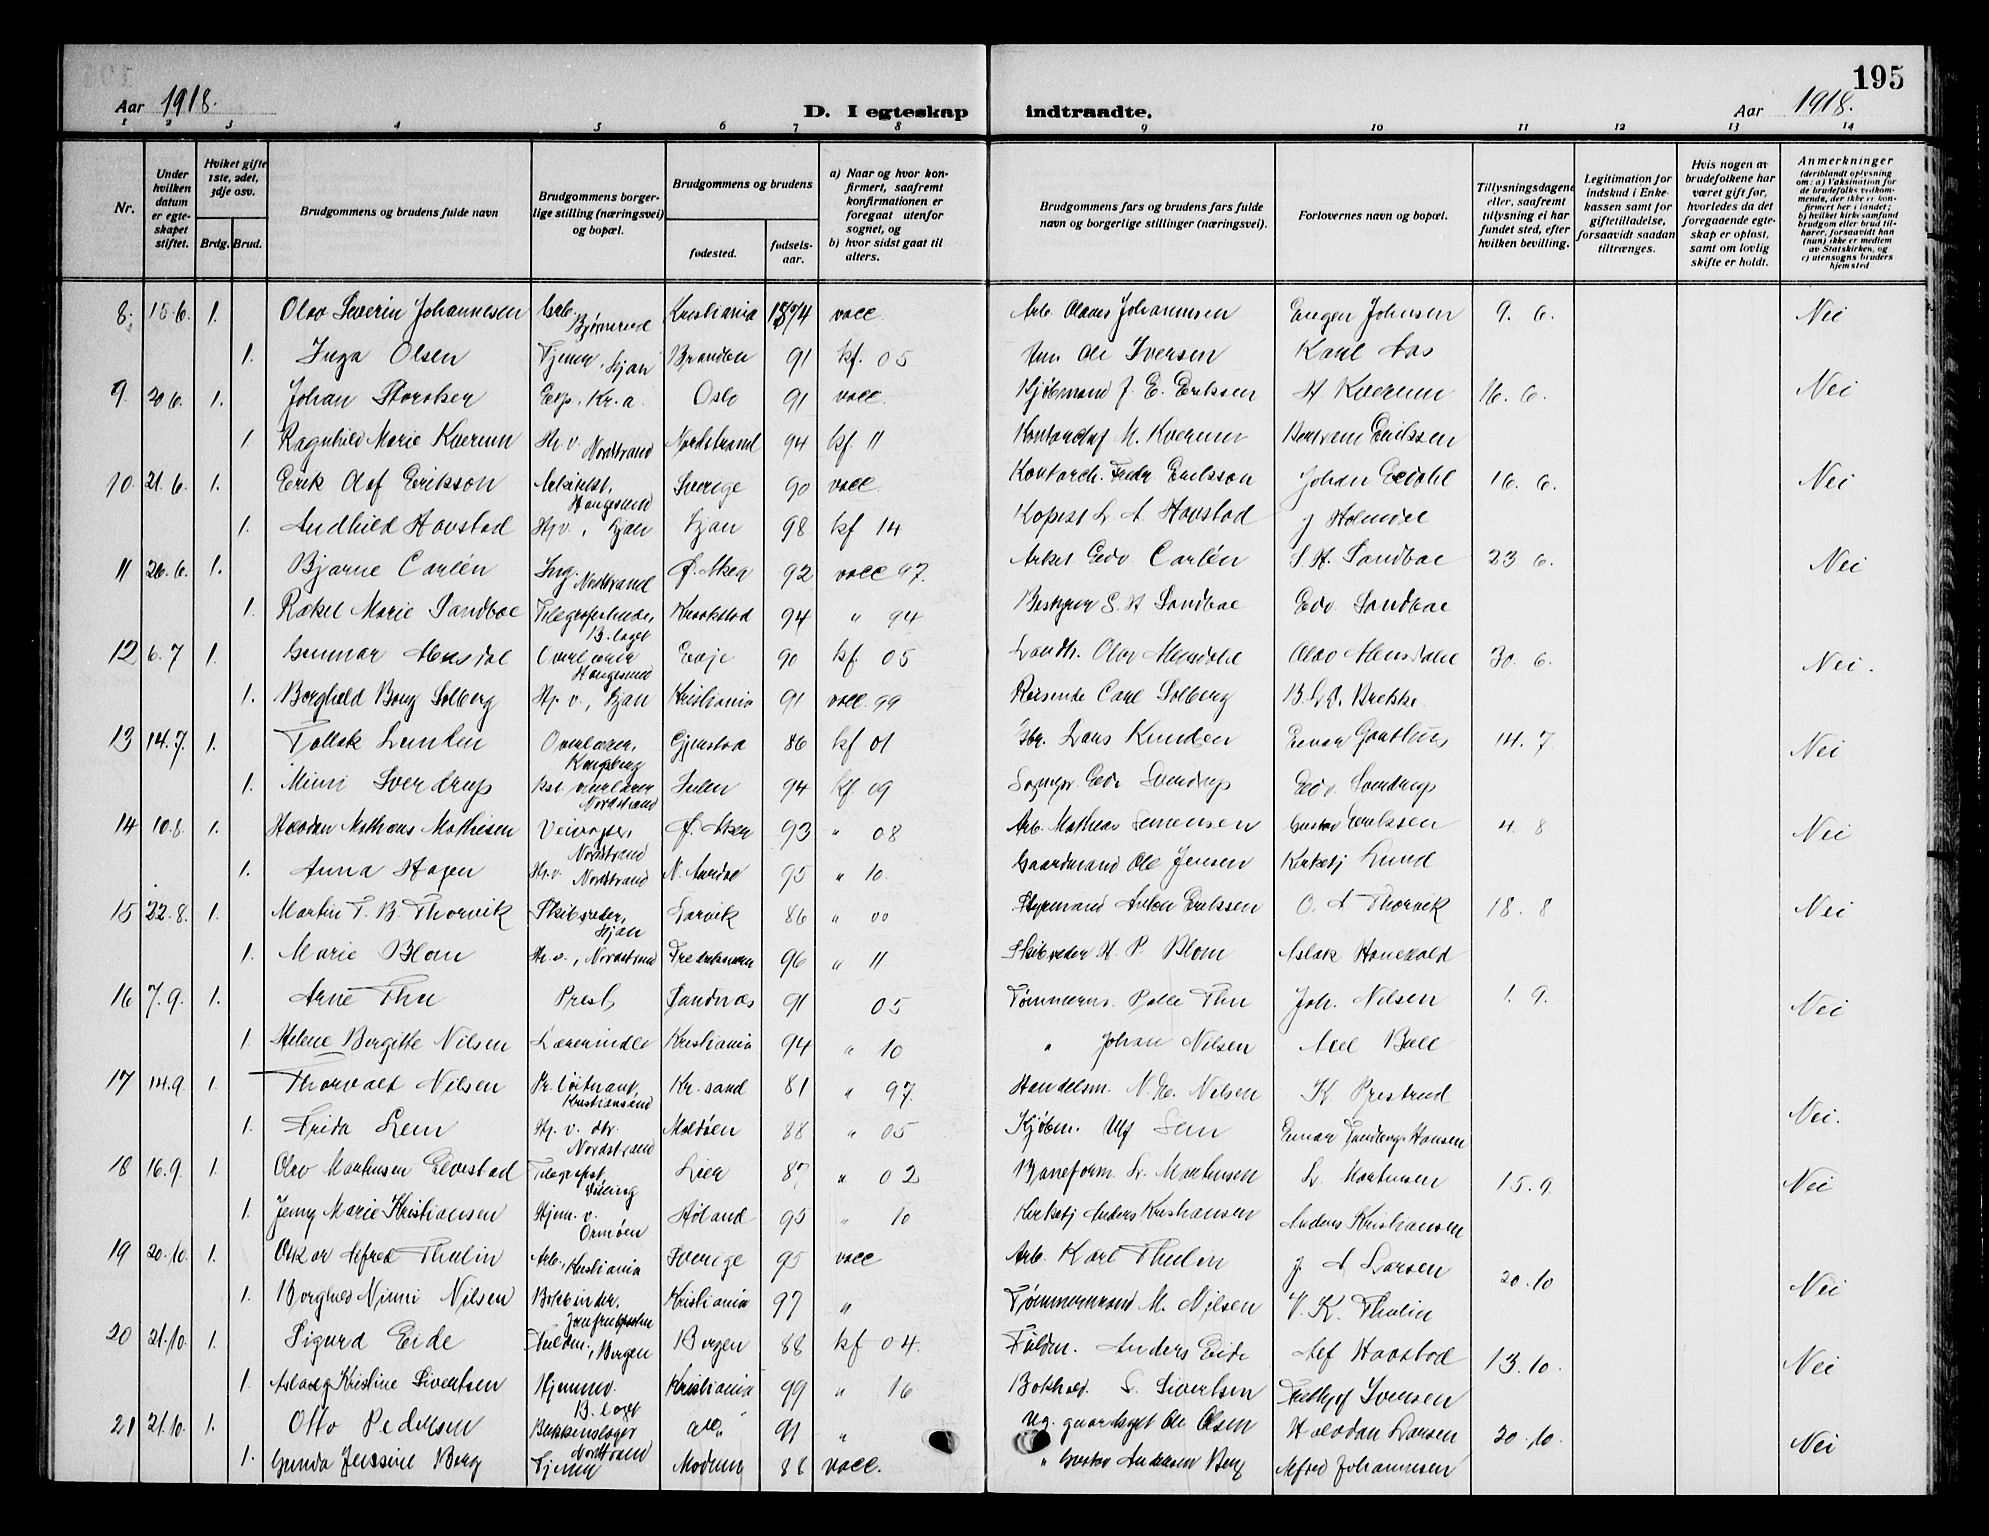 195
Aar 1918.
D. I egteskap indtraadte.
Aar 1918.
1 2 3 4 5 6 7 8 9 10 11 12 13 14
Nr.
Under hvilken datum er egteskapet stiftet.
Hvilket gifte 1ste, 2det, 3dje osv.
Brdg. Brud.
Brudgommens og brudens fulde navn
Brudgommens borgerlige stilling (næringsvei) og bopæl.
Brudgommens og brudens
fødested.
fødselsaar.
a) Naar og hvor konfirmert, saafremt konfirmationen er foregaat utenfor sognet, og
b) hvor sidst gaat til alters.
Brudgommens fars og brudens fars fulde navn og borgerlige stillinger (næringsvei).
Forlovernes navn og bopæl.
Tillysningsdagene eller, saafremt tillysning ei har fundet sted, efter hvilken bevilling.
Legitimation for indskud i Enkekassen samt for giftetilladelse, forsaavidt saadan tiltrænges.
Hvis nogen av brudefolkene har været gift før, hvorledes da det foregaaende egteskap er opløst, samt om lovlig skifte er holdt.
Anmerkninger (deriblandt oplysning om: a) Vaksination for de brudefolks vedkommende, der ikke er konfirmert her i landet; b) hvilket kirkesamfund brudgom eller brud tilhører, forsaavidt han (hun) ikke er medlem av Statskirken, og c) utensogns bruders hjemsted
8. 15.6. 1. Olav Severin Johannesen Arb. Bjørnerud Kristiania 1874 vacc. Arb. Olaves Johannesen Eugen Johnsen 9. 6. Nei
1. Inga Olsen Tjener, Ljan Branden 91 kf. 05 Ole Iversen Karl Aas
9. 20.6. 1. Johan Storaker Exp. Kr.a. Oslo 91 vacc. Kjøbmand J. E. Eriksen H Kverum 16. 6. Nei
1. Ragnhild Marie Kverum Hj. v. Nordstrand Nordstrand 94 kf. 11 M. Kverum Eriksen
10. 21.6. 1. Erik Olof Erikson Arkitekt, Haugesund Sverige 90 vacc. Eriksson Johan 16. 6. Nei
1. Audhild Hovstad Hj. v., Ljan Ljan 98 kf 14 L. A. Hovstad J
11 26.6. 1. Bjarne Carlén Ing. Nordstrand Ø. Aker 92 vacc 97. Edv Carlén S. H. Sandbæ 23 6. Nei
1. Rakel Marie Sandbæ B. laget Kraakstad 94 " 94 Bestyrer S. H Sandbæ Edv Sandbæ
12 6.7 1. Gunnar Haugesund Evje 90 kf. 05 Olav Olav 30. 6. Nei.
1. Borghild Borg Solberg Hj. v., Ljan Kristiania 91 vacc. 99 Reisende Carl Solberg B. Brekke
13 14.7. 1. Tallak Lunden Overlærer, Kongsberg Gjerstad 86 kf 01 Lars Knudsen 14. 7 Nei
1. Mimi Sverdrup Nordstrand Sulen 94 kf 09 Sognepr. Edv Sverdrup Edv. Sverdrup
14 10.8. 1. Halvdan Mathæus Mathisen Nordstrand Ø. Aker 93 " 08 Arb. Mathias Simensen Gustav Eriksen 4. 8 Nei
1. Anna Hagen Hj. v. Nordstrand N. 95 " 10. Gaardmand Ole Jensen Kirketj Lund
15 22.8. 1. Martin T. B. Thorvik Skibsreder, Ljan Larvik 86 " 00 Styrmand Anton Eriksen O. A Thorvik 18. 8 Nei
1. Marie Blom Hj. v., Nordstrand 96 " 11 Skibsreder H. P. Blom Aslak
16 7.9. 1. Arne Thu Prest, Sandnes 91 05 Tømmerm. Thu Joh. Nilsen 1. 9. Nei
1. Helene Bergitte Nilsen Lærerindde Kristiania 94 " 10 " Johan Nilsen Axel Boll
17 14.9. 1. Thorvald Nilsen Pr. løitnant, Kristiansand Kr. sand 81 " 97. Handelsm. N. Nilsen K. Prestrud
1. Frida Sem Hj. v. Nordstrand Maldøen 88 " 05 Kjøbm. Ulf Sem Einar Hansen Nei.
18 16.9. 1. Olav Martinsen Telegrafist, Lier 87 " 02 Baneform. L. Martinsen L. Martinsen 15. 9. Nei
1. Jenny Marie Kristiansen Hjem. v. Ormøen Høland 95 " 10 Kirketj Anders Kristiansen Anders Kristiansen
19 20.10. 1. Oskar Alfred Thulin Arb., Kristiania Sverige 95 vacc Arb. Karl Thulin J. A Larsen 20. 10 Nei
1. Borghild Nimi Nilsen Bokbinder, Kristiania 97 " Tømmermand M. Nilsen V. K. Thulin
20 21.10. 1. Sigurd Eide Fuldm., Bergen Bergen 88 kf 04. Fuldm. Anders Eide Alf Havstad 13. 10. Nei
1. Aslaug Kristine Sivertsen Hjemmev. B. laget Kristiania 99 " 16 Bokhold. S. Sivertsen Fridtjof Iversen
21 21.10. 1. Otto Pedersen Nordstrand 91 " Ole Olsen Halvdan Larsen 20. 10. Nei
1. Gunda Jensine Berg Tjener Modum 88 vacc. " Gustav Andersen Berg Alfred Johannesen